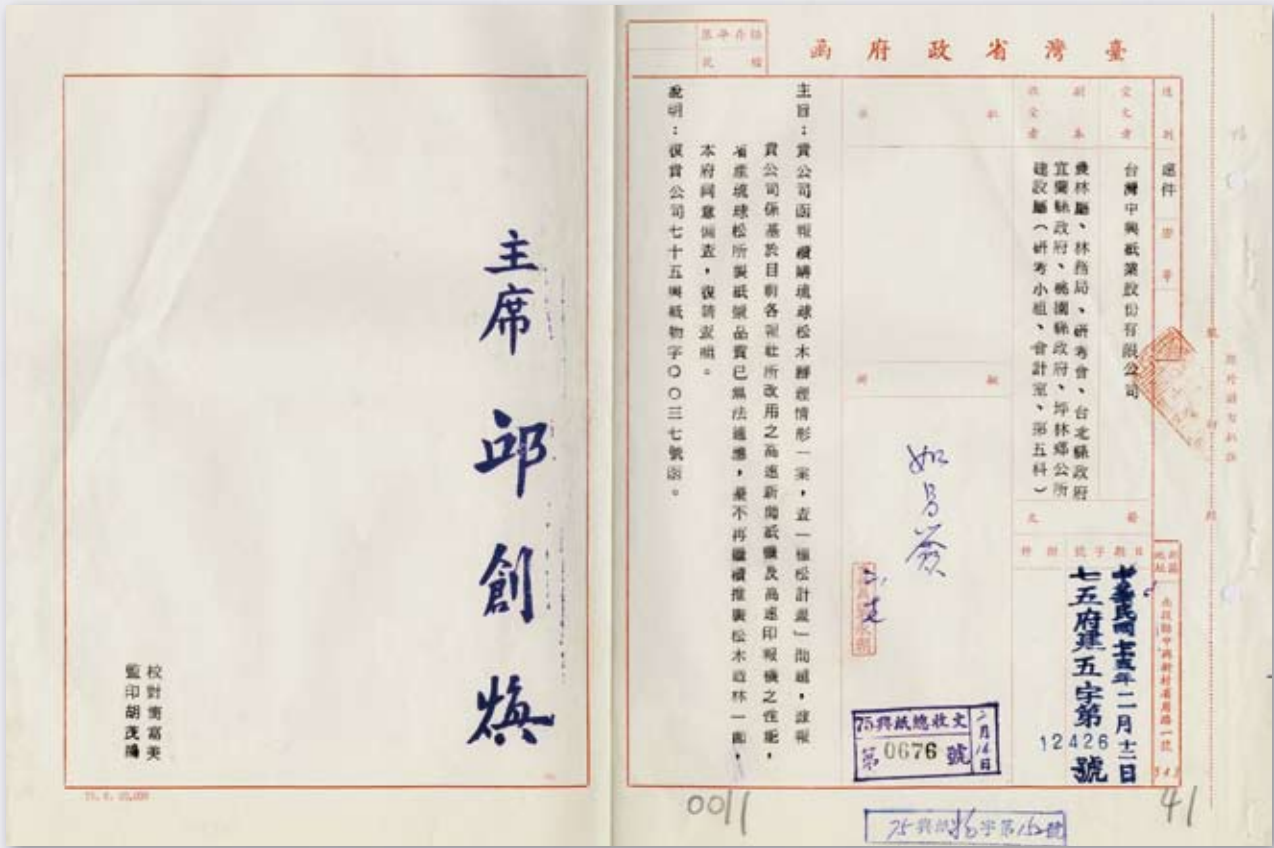 臺灣省政府函
檔存年限
檔號
速別
速件
受文者
台灣中興紙業股份有限公司
副本
收受者
農林廳、林務局、研考會、台北縣政府
宜蘭縣政府、桃園縣政府、坪林鄉公所
建設廳(研考小組、會計室、第五科)
發文
日期
字號
附件
中華民國七十五年二月十二日
七五府建五字第
12426
號
批示
擬辦
如另簽
75興紙總收文
第0676號
二月14日
主旨:貴公司函報續購琉球松木辦理情形一案,查「種松計畫」問題,據報
貴公司係基於目前各報社所改用之高速新聞紙機及高速印報機之性能,
省產琉球松所製紙漿品質已無法適應,爰不再繼續推廣松木造林一節,
本府同意備查,復請查照。
說明:復貴公司七十五興紙物字〇〇三七號函。
主席 邱創煥
校對
監印胡茂
0011
41